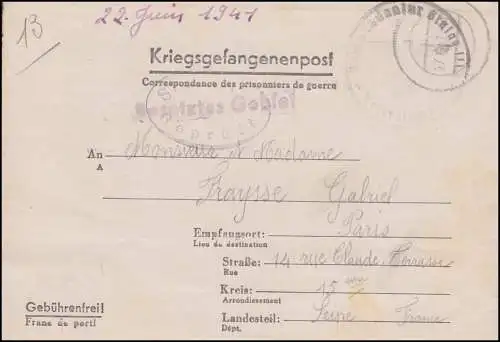 22 Juin 1941
13
Kriegsgefangenenpost
Correspondance des prisonniers de guerre
Besetztes Gebiet
Geprüft
An Monsieur et Madame
A
Fraysse Gabriel
Empfangsort: Paris
Lieu de destination
Straße: 14 rue Claude Terrasse
Rue
Kreis: 15
Arrondissement
Gebührenfrei!
Franc de port!
Landesteil: Seine France
Dépt.